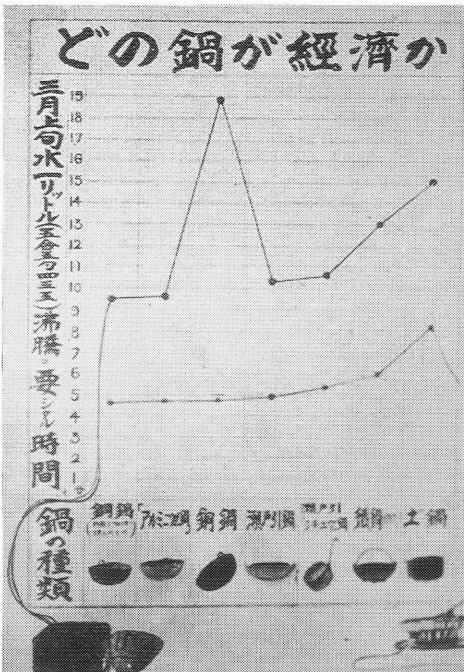 どの鍋が經濟か
三月上旬水一リットル(五合五勺四三五)沸騰ニ要シタル時間
19
18
17
16
15
14
13
12
11
10
9
8
7
6
5
4
3
2
1
鍋の種類
アルミニウム鍋
銅鍋
瀬戸引鍋
土鍋